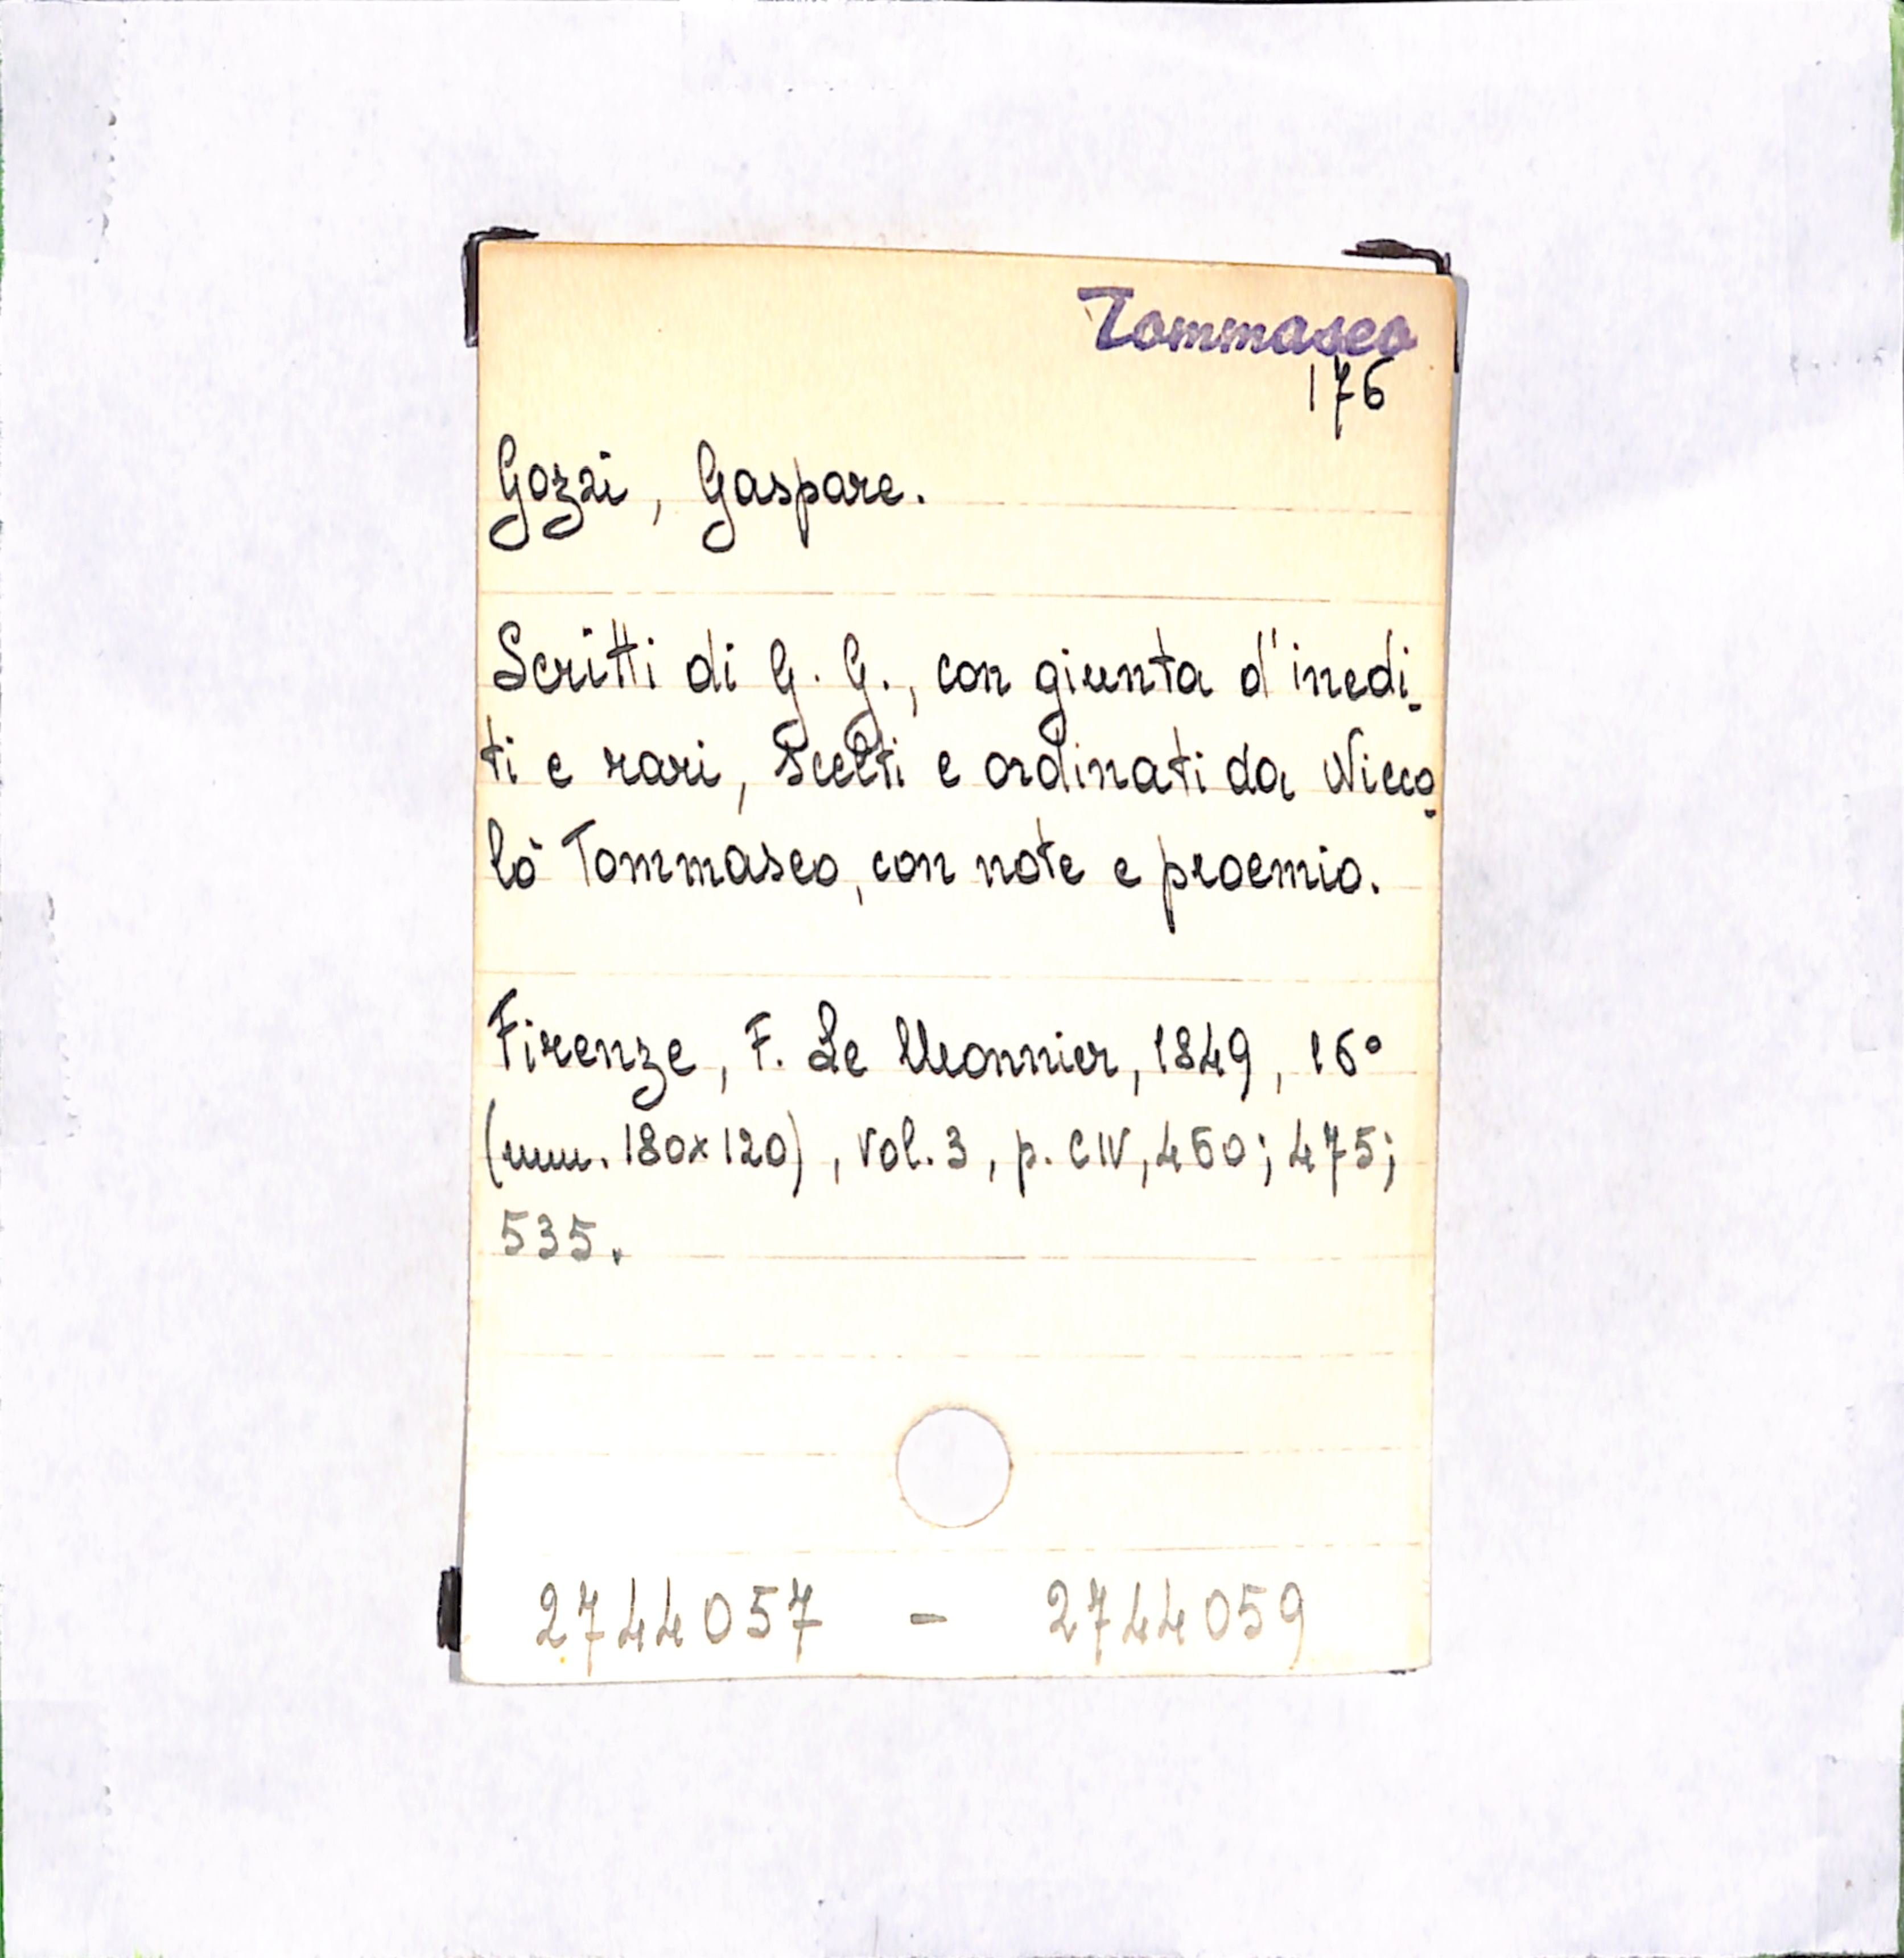 Tommaseo
176
Gozzi, Gaspare.
Scritti di G. G., con giunta d'inedi-
ti e rari, scelti e ordinati da Nicco-
lò Tommaseo, con note e proemio.
Firenze, F. Le Monnier, 1849, 16°
(mm. 180x120), vol. 3, p. CIV, 460; 475;
535.
2744057 - 2744059